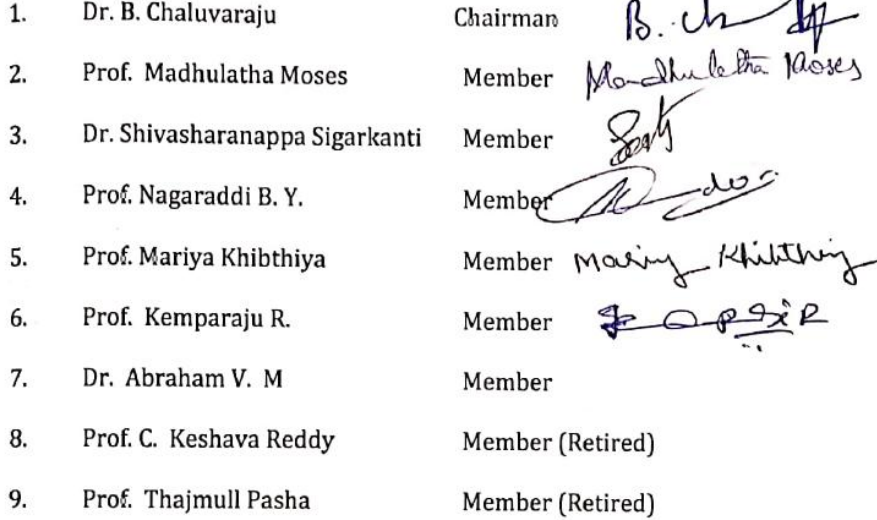 1. Dr. B. Chaluvaraju Chairman B. Ch
2. Prof. Madhulatha Moses Member Madhulatha Moses
3. Dr. Shivasharanappa Sigarkanti Member
4. Prof. Nagaraddi B. Y. Member
5. Prof. Mariya Khibthiya Member Mariya Khibthiya
6. Prof. Kemparaju R. Member
7. Dr. Abraham V. M Member
8. Prof. C. Keshava Reddy Member (Retired)
9. Prof. Thajmull Pasha Member (Retired)